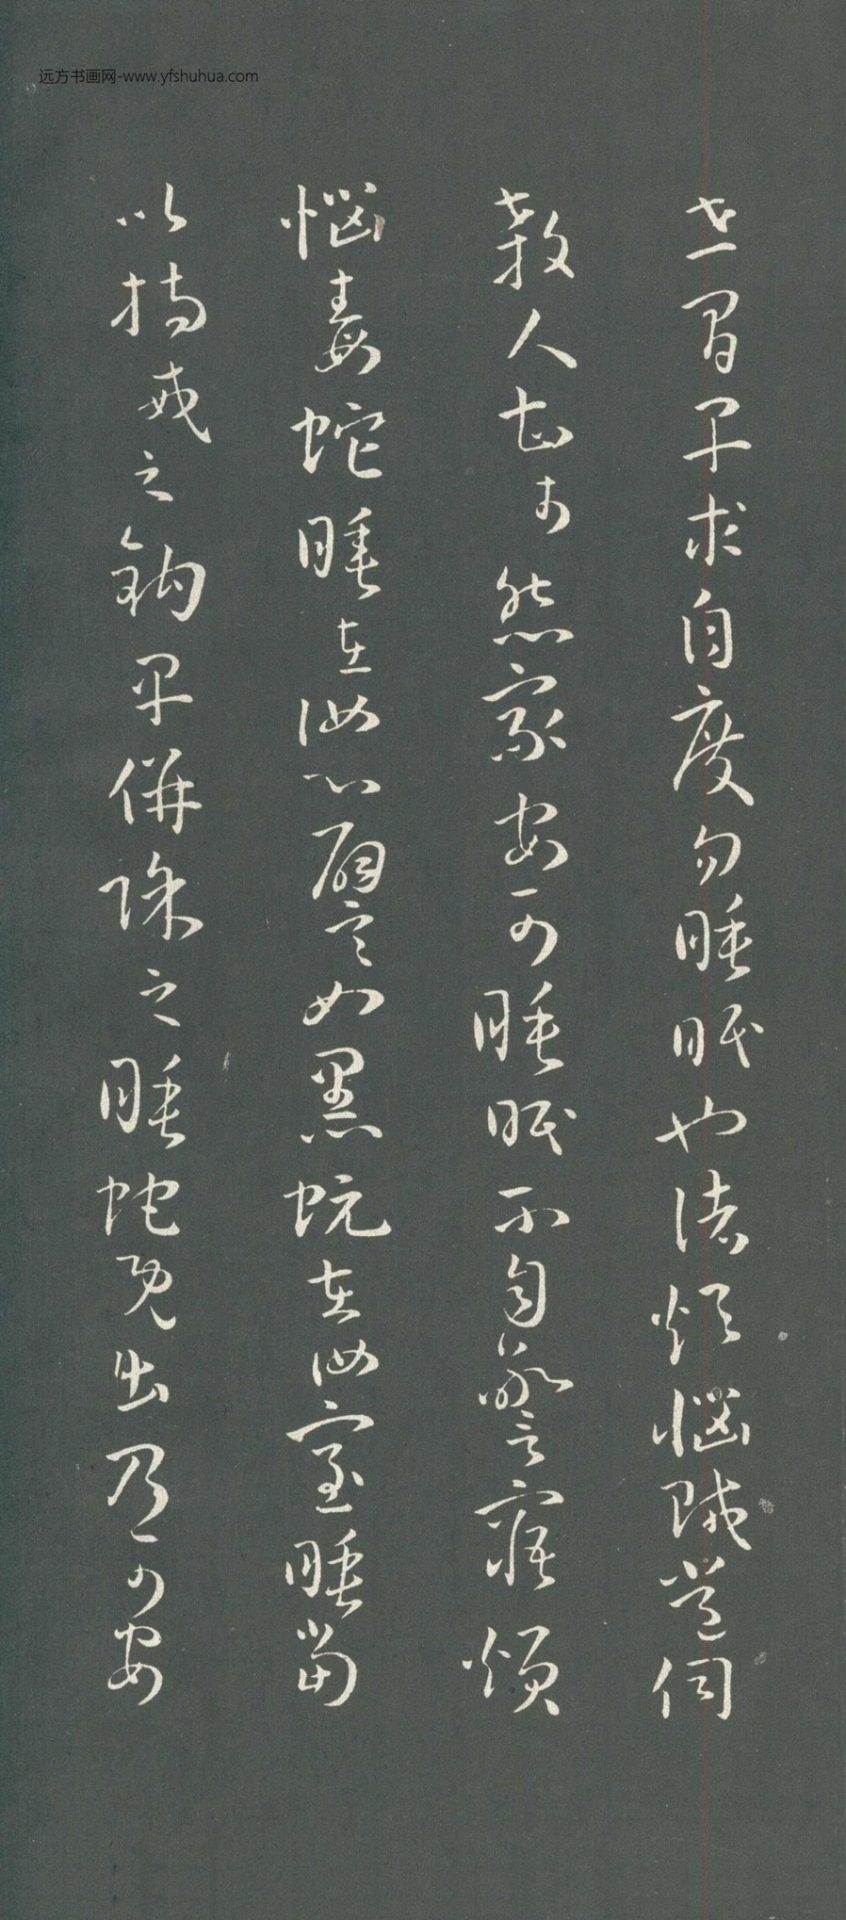 远方书画网-www.yfshuhua.com
世間早求自度勿睡眠也諸煩惱賊常伺
殺人甚於怨家安可睡眠不自警寤煩
惱毒蛇睡在汝心譬如黑蚖在汝室睡當
以持戒之鈎早併除之睡蛇既出乃可安